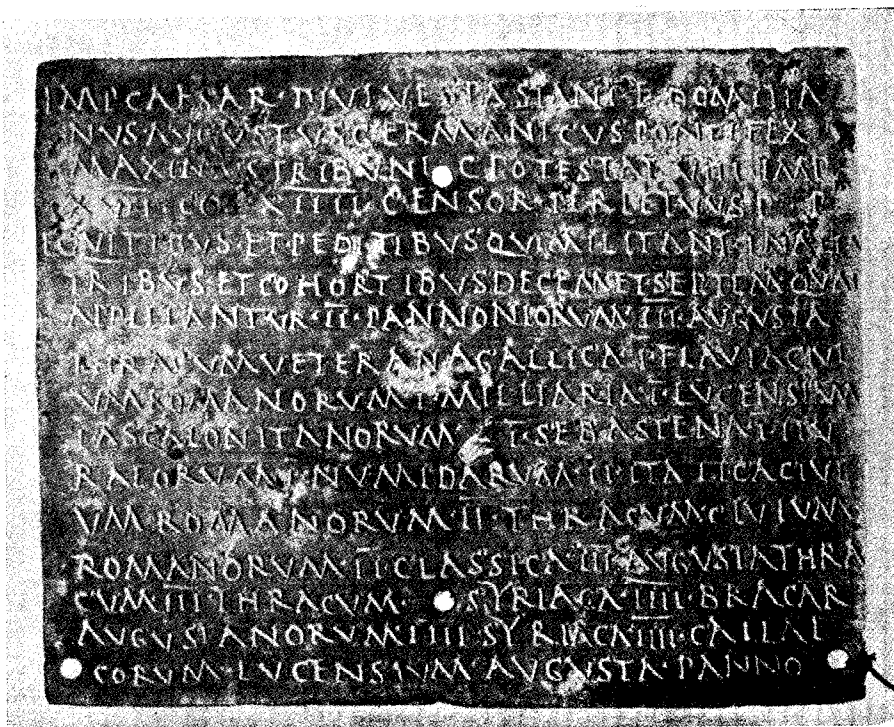 IMP CAESAR DIVI VESPASIANI F DOMITIA
NVS AVGVSTVS GERMANICVS PONTIFEX
MAXIMVS TRIBVNIC POTESTAT VIII IMP
XVII COS XIIII CENSOR PERPETVVS P P
EQVITIBVS ET PEDITIBVS QVI MILITANT IN ALIS
TRIBVS ET COHORTIBVS DECEM ET SEPTEM QVAE
APPELLANTVR·II·PANNONIORVM·III·AVGVSTA
THRACVM VETERANA GALLICA·I·FLAVIA CIVI
VM ROMANORVM I MILLIARIA·I·LVCENSIVM
I ASCALONITANORVM I·SEBASTENA·I·ITV
RAEORVM I NVMIDARVM·II·ITALICA CIVI
VM·ROMANORVM·II·THRACVM·CIVIVM
ROMANORVM·II CLASSICA·III·AVGVSTA THRA
CVM III THRACVM·SYRIACA·IIII·BRACAR
AVGVSTANORVM·IIII·SYRIACA·IIII·CALLAE
CORVM·LVCENSIVM·AVGVSTA·PANNO